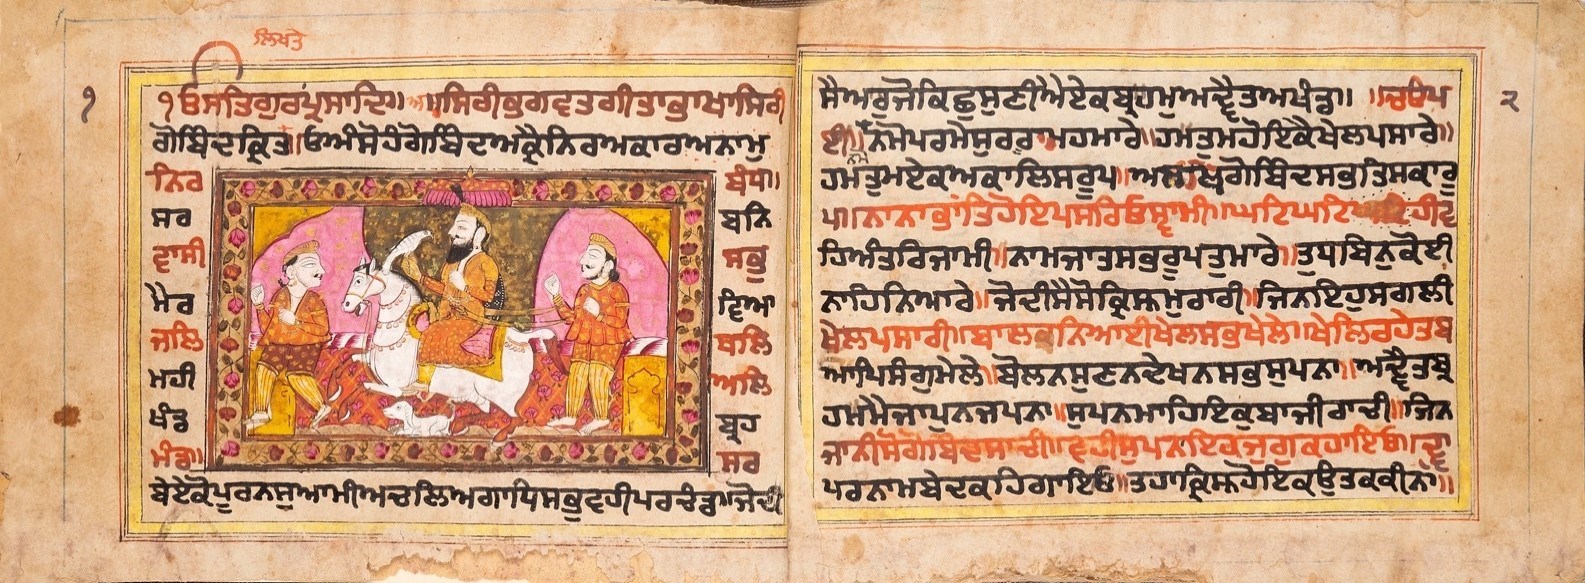 ਲਿਖਤੇ
੧
੧ਓ ਸਤਿਗੁਰਪ੍ਰਸਾਦਿ॥ ॥ਸਿਰੀਭਗਵਤਗੀਤਾਭਾਖਾਸਿਰੀ
ਗੋਬਿੰਦਕ੍ਰਿਤ॥ਓਅੰਸੋਹੰਗੋਬਿੰਦਅਕ੍ਰੈਨਿਰਅਕਾਰਅਨਾਮੁ
ਨਿਰ ਬੰਧ॥
ਸਰ ਬਨਿ
ਵਾਸੀ ਸਭੁ
ਮੈਰ ਵਿਆ
ਜਲਿ ਥਲਿ
ਮਹੀ ਅਲਿ
ਖੰਡ ਬ੍ਰਹ
ਮੰਡ॥ ਸਰ
ਬੇਏਕੋਪੂਰਨਸੁਆਮੀਅਚਲਿਅਗਾਧਿਸਭੁਵਹੀਪਰਚੰਡ॥ਜੋਦੀ
੨
ਸੈਅਰੁਜੋਕਿਛੁਸੁਣੀਐਏਕਬ੍ਰਹਮੁਅਦ੍ਵੈਤਅਖੰਡ॥ ॥ਚਉਪ
ਈ॥ਨਮੋਪਰਮੇਸੁਰਰਾਮਹਮਾਰੇ॥ਹਮਤੁਮਹੋਇਕੈਖੇਲਪਸਾਰੇ॥
ਹਮਤੁਮਏਕਅਕਾਲਿਸਰੂਪ॥ਅਲਖਗੋਬਿੰਦਸਭੁਤਿਸਕਾਰੂ
ਪ॥ਨਾਨਾਭਾਂਤਿਹੋਇਪਸਰਿਓਸ੍ਵਾਮੀ॥ਘਟਿਘਟਿ ਵਹੀਵ
ਹਿਅੰਤਰਿਜਾਮੀ॥ਨਾਮਜਾਤਸਭੁਰੂਪਤੁਮਾਰੇ॥ਤੁਧਬਿਨੁਕੋਈ
ਨਾਹਿਨਿਆਰੇ॥ਜੋਦੀਸੈਸੋਕ੍ਰਿਸ੍ਨਮੁਰਾਰੀ॥ਜਿਨਇਹੁਸਗਲੀ
ਖੇਲਪਸਾਰੀ॥ਬਾਲਕਨਿਆਈਖੇਲਸਭਖੇਲੇ॥ਖੇਲਿਰਹੇਤਬ
ਆਪਿਸੰਗੁਮੇਲੇ॥ਬੋਲਨਸੁਣਨਦੇਖਨਸਭੁਸੁਪਨਾ॥ਅਦ੍ਵੈਤਬ੍ਰ
ਹਮਮੈਜਾਪੁਨਜਪਨਾ॥ਸੁਪਨਮਾਹਿਇਕੁਬਾਜੀਰਾਚੀ॥ਜਿਨ
ਜਾਨੀਸੋਗੋਬਿੰਦਸਾਚੀ॥ਵਹੀਸੁਪਨਇਕਜਗੁਕਹਾਇਓ॥ਦ੍ਵਾ
ਪਰਨਾਮਬੇਦਕਹਿਗਾਇਓ॥ਤਹਾਕ੍ਰਿਸ੍ਨਹੋਇਕਉਤਕਕੀਨਾ॥